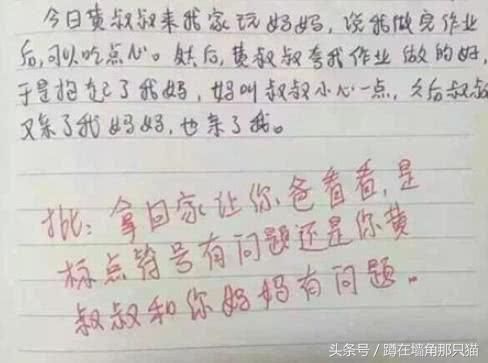 今日黄叔叔来我家玩妈妈，说我做完作业
后，可以吃点心。然后，黄叔叔夸我作业做的好，
于是抱起了我妈，妈叫叔叔小心一点，之后叔叔
又亲了我妈妈，也亲了我。
批：拿回家让你爸看看，是
标点符号有问题还是你黄
叔叔和你妈妈有问题。
头条号 / 蹲在墙角那只猫